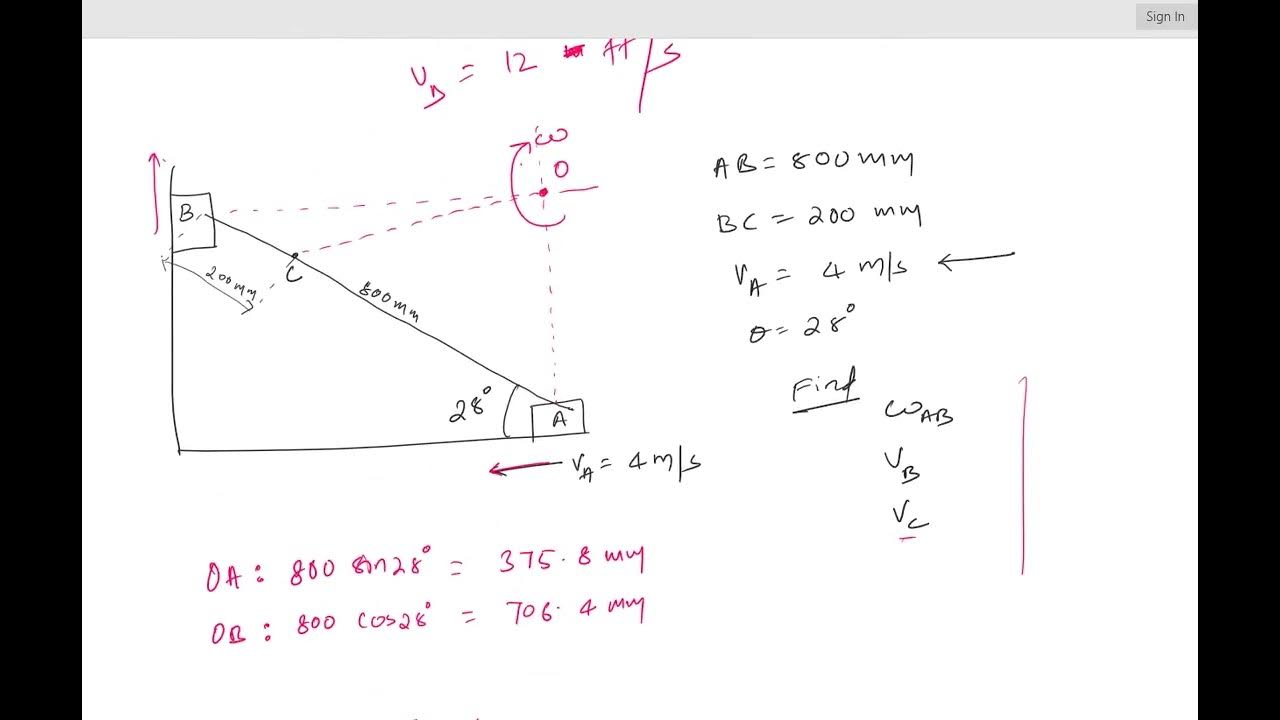 Sign In
V_B = 12 ft/s
ω
O
B
C
200mm
800mm
28°
A
V_A = 4 m/s
AB = 800mm
BC = 200 mm
V_A = 4 m/s ←
θ = 28°
Find
ω_AB
V_B
V_C
OA : 800 sin28° = 375.8 mm
OB : 800 cos28° = 706.4 mm